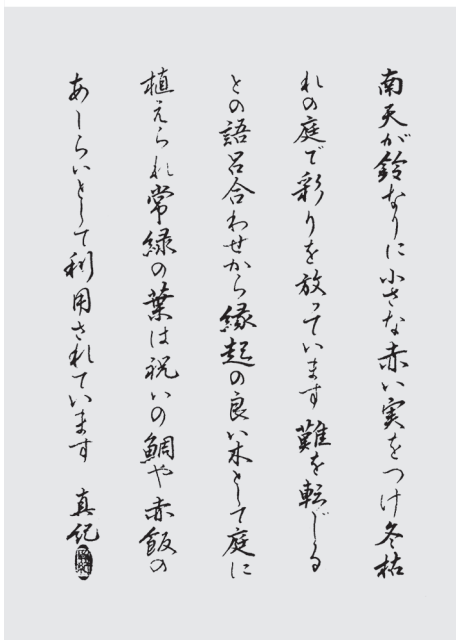 南天が鈴なりに小さな赤い実をつけ冬枯
れの庭で彩りを放っています難を転じる
との語呂合わせから縁起の良い木として庭に
植えられ常緑の葉は祝いの鯛や赤飯の
あしらいとして利用されています 真紀